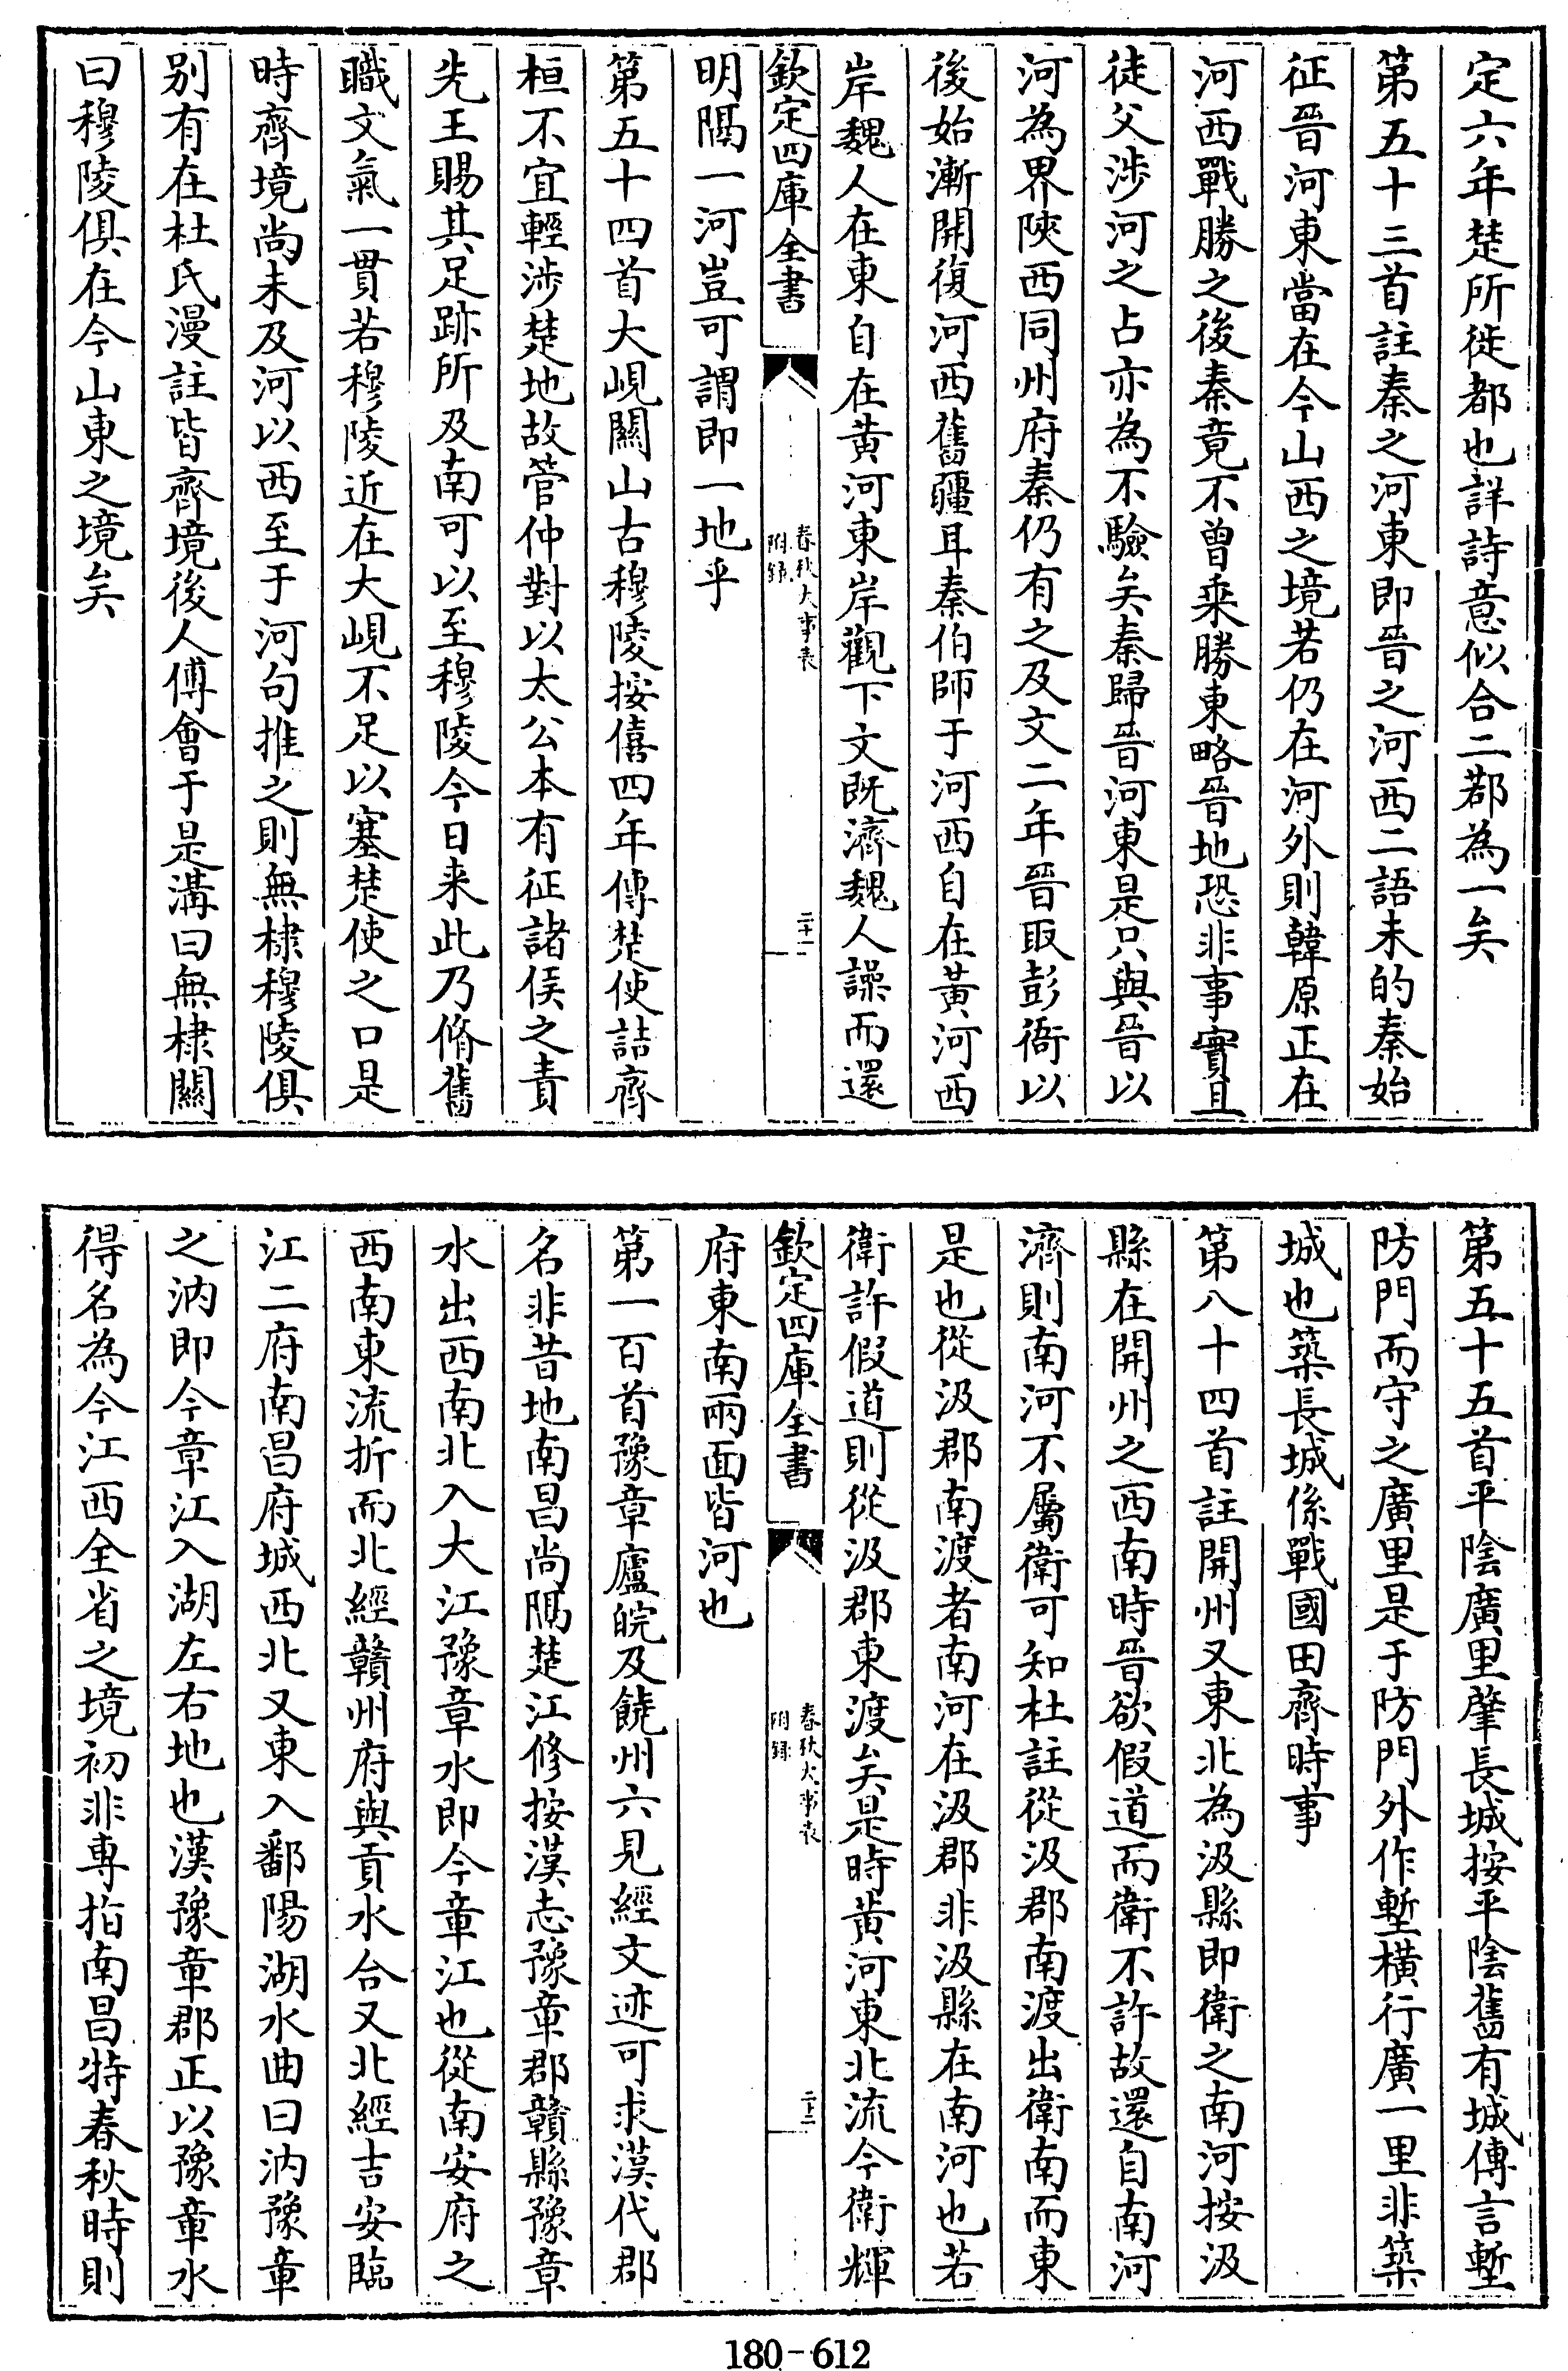 定六年楚所徙都也詳詩意似合二鄀為一矣
第五十三首註秦之河東即晉之河西二語未的秦始
征晉河東當在今山西之境若仍在河外則韓原正在
河西戰勝之後秦竟不曾乘勝東略晉地恐非事實且
徒父涉河之占亦為不驗矣秦歸晉河東是只與晉以
河為界陝西同州府秦仍有之及文二年晉取彭衙以
後始漸開復河西舊疆耳秦伯師于河西自在黃河西
岸魏人在東自在黃河東岸觀下文既濟魏人譟而還
欽定四庫全書
春秋大事表
附錄
二十一
明隔一河豈可謂即一地乎
第五十四首大峴關山古穆陵按僖四年傳楚使詰齊
桓不宜輕涉楚地故管仲對以太公本有征諸侯之責
先王賜其足跡所及南可以至穆陵今日来此乃脩舊
職文氣一貫若穆陵近在大峴不足以塞楚使之口是
時齊境尚未及河以西至于河句推之則無棣穆陵俱
别有在杜氏漫註皆齊境後人傅會于是溝曰無棣關
曰穆陵俱在今山東之境矣
第五十五首平陰廣里肇長城按平陰舊有城傳言塹
防門而守之廣里是于防門外作塹橫行廣一里非築
城也築長城係戰國田齊時事
第八十四首註開州又東北為汲縣即衛之南河按汲
縣在開州之西南時晉欲假道而衛不許故還自南河
濟則南河不屬衛可知杜註從汲郡南渡出衛南而東
是也從汲郡南渡者南河在汲郡非汲縣在南河也若
衛許假道則從汲郡東渡矣是時黃河東北流今衛輝
欽定四庫全書
春秋大事表
附錄
二十二
府東南兩面皆河也
第一百首豫章廬皖及饒州六見經文迹可求漢代郡
名非昔地南昌尚隔楚江修按漢志豫章郡贛縣豫章
水出西南北入大江豫章水即今章江也從南安府之
西南東流折而北經贛州府與貢水合又北經吉安臨
江二府南昌府城西北又東入鄱陽湖水曲曰汭豫章
之汭即今章江入湖左右地也漢豫章郡正以豫章水
得名為今江西全省之境初非專指南昌特春秋時則
180-612